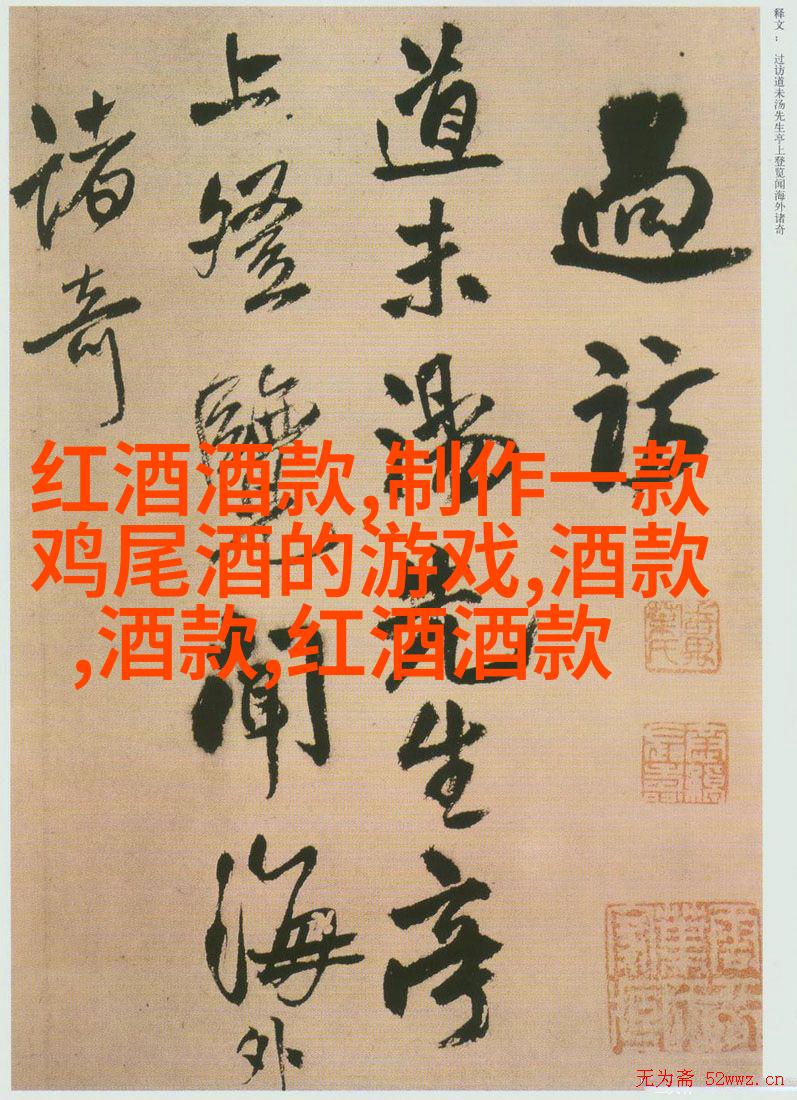 释文： 过访道未汤先生亭上登览闻海外诸奇
過訪
道未湯先生亭
上登覽聞海外
諸奇
红酒酒款,制作一款
鸡尾酒的游戏,酒款
,酒款,红酒酒款
无为斋 52wwz.cn